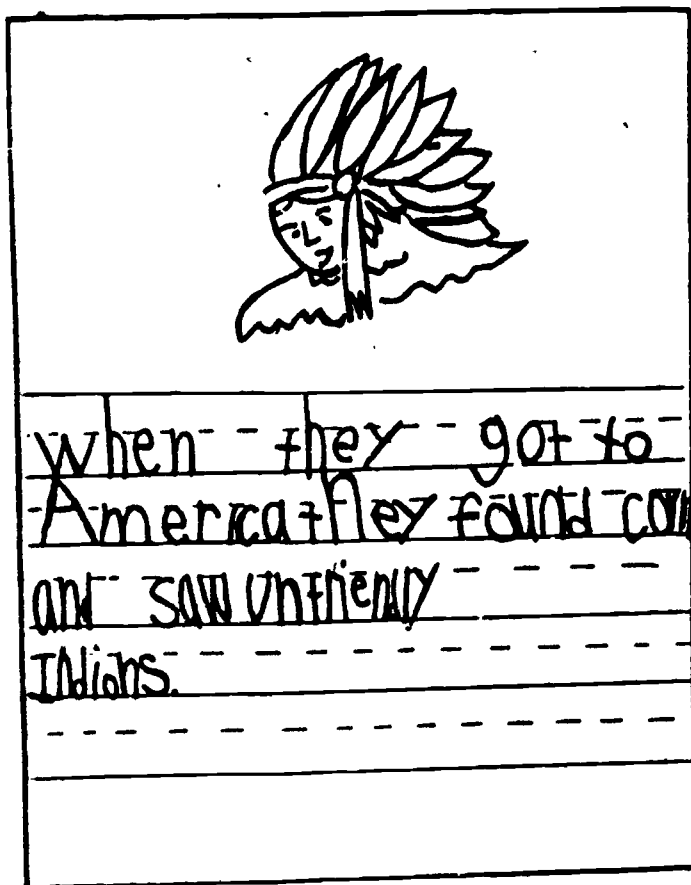 when they got to
America they found corn
and saw unfriendly
Indians.